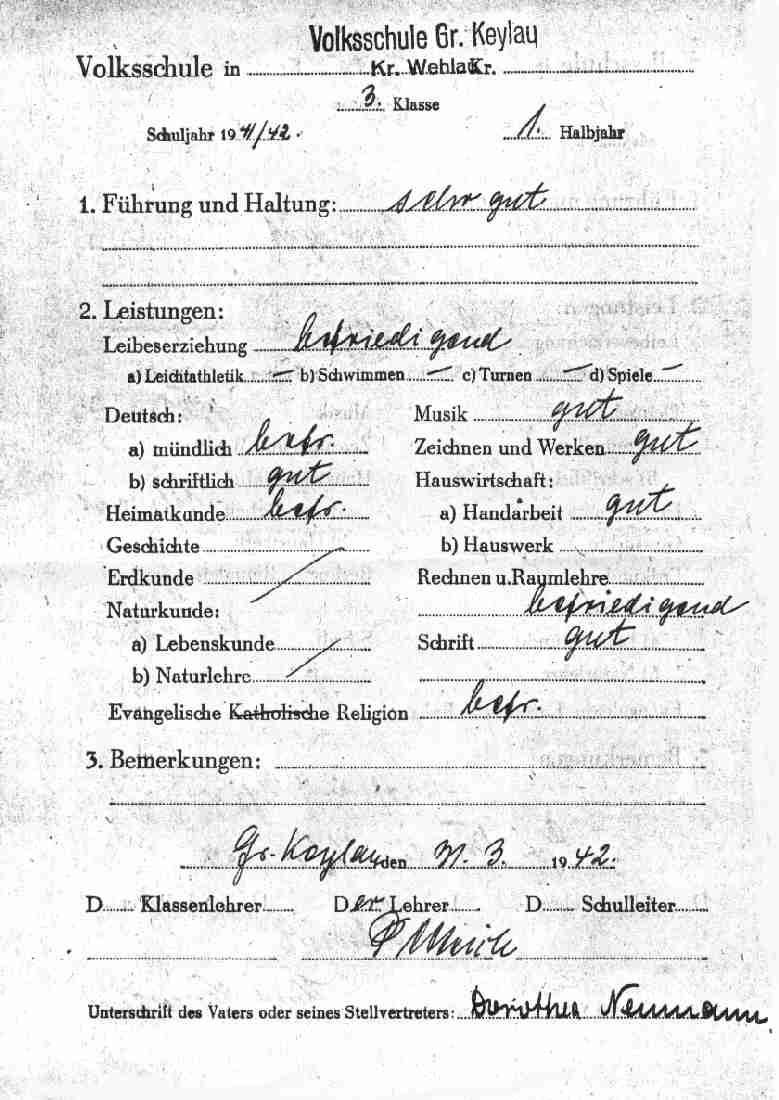 Volksschule Gr. Keylau
Volksschule in Kr. Wehlau Kr.
3. Klasse
Schuljahr 1941/42. 1. Halbjahr
1. Führung und Haltung: sehr gut
2. Leistungen:
Leibeserziehung befriedigend
a) Leichtathletik — b) Schwimmen — c) Turnen — d) Spiele —
Deutsch: Musik gut
a) mündlich befr. Zeichnen und Werken gut
b) schriftlich gut Hauswirtschaft:
Heimatkunde befr. a) Handarbeit gut
Geschichte b) Hauswerk
Erdkunde Rechnen u. Raumlehre
Naturkunde: befriedigend
a) Lebenskunde Schrift gut
b) Naturlehre
Evangelische Katholische Religion befr.
3. Bemerkungen:
Gr. Keylau den 3. 1942.
D Klassenlehrer Der Lehrer D Schulleiter
Unterschrift des Vaters oder seines Stellvertreters: Dorothea Neumann